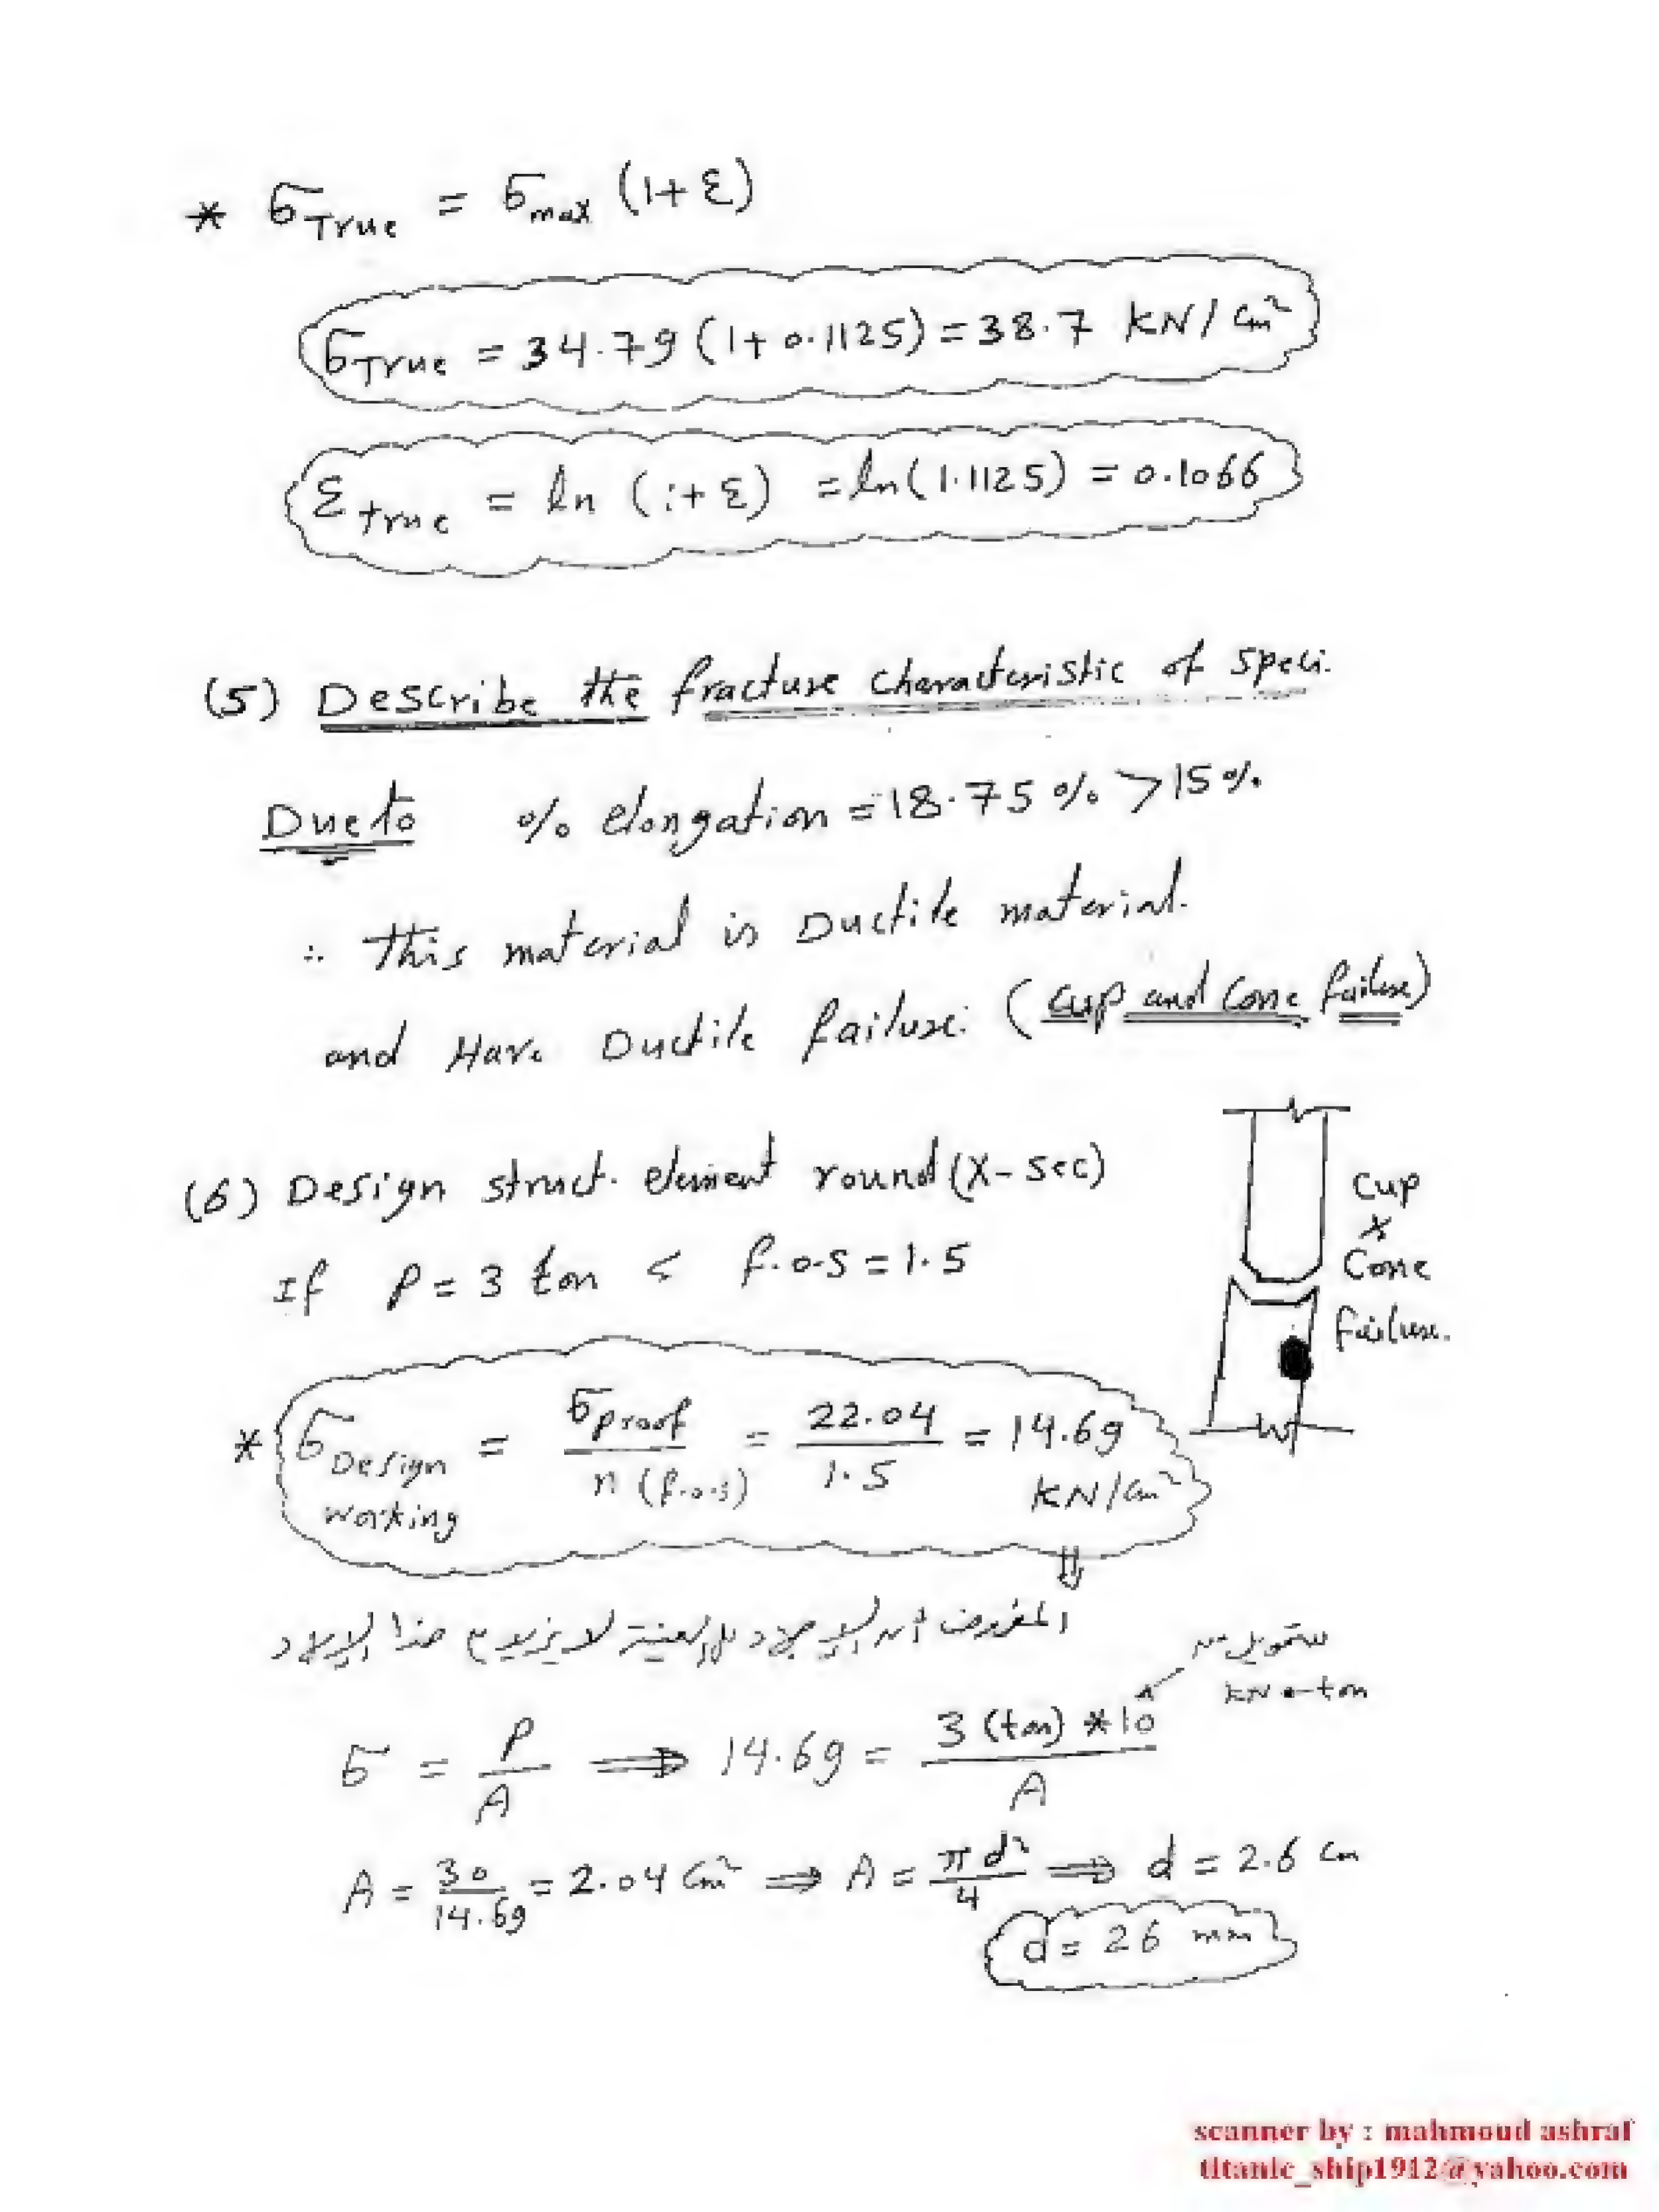 * σTrue = σmax (1+ε)
σTrue = 34.79 (1+0.1125) = 38.7 kN/cm²
εtrue = ln (1+ε) = ln(1.1125) = 0.1066
(5) Describe the fracture characteristic of speci.
Due to % elongation = 18.75 % > 15 %
∴ This material is Ductile material.
and Have Ductile failure. (cup and cone failure)
(6) Design struct. element round (X-sec)
If P = 3 ton < f.o.s = 1.5
cup
x
Cone
failure.
* σDesign working = σproof / n (f.o.s) = 22.04 / 1.5 = 14.69 kN/cm²
⇓
المفروض أن الإجهاد للعينة لا يزيد عن هذا الإجهاد
kN ← ton
σ = P/A ⟹ 14.69 = 3 (ton) *10 / A
A = 30/14.69 = 2.04 cm² ⟹ A = πd²/4 ⟹ d = 2.6 cm
d = 26 mm
scanner by : mahmoud ashraf
titanic_ship1912@yahoo.com